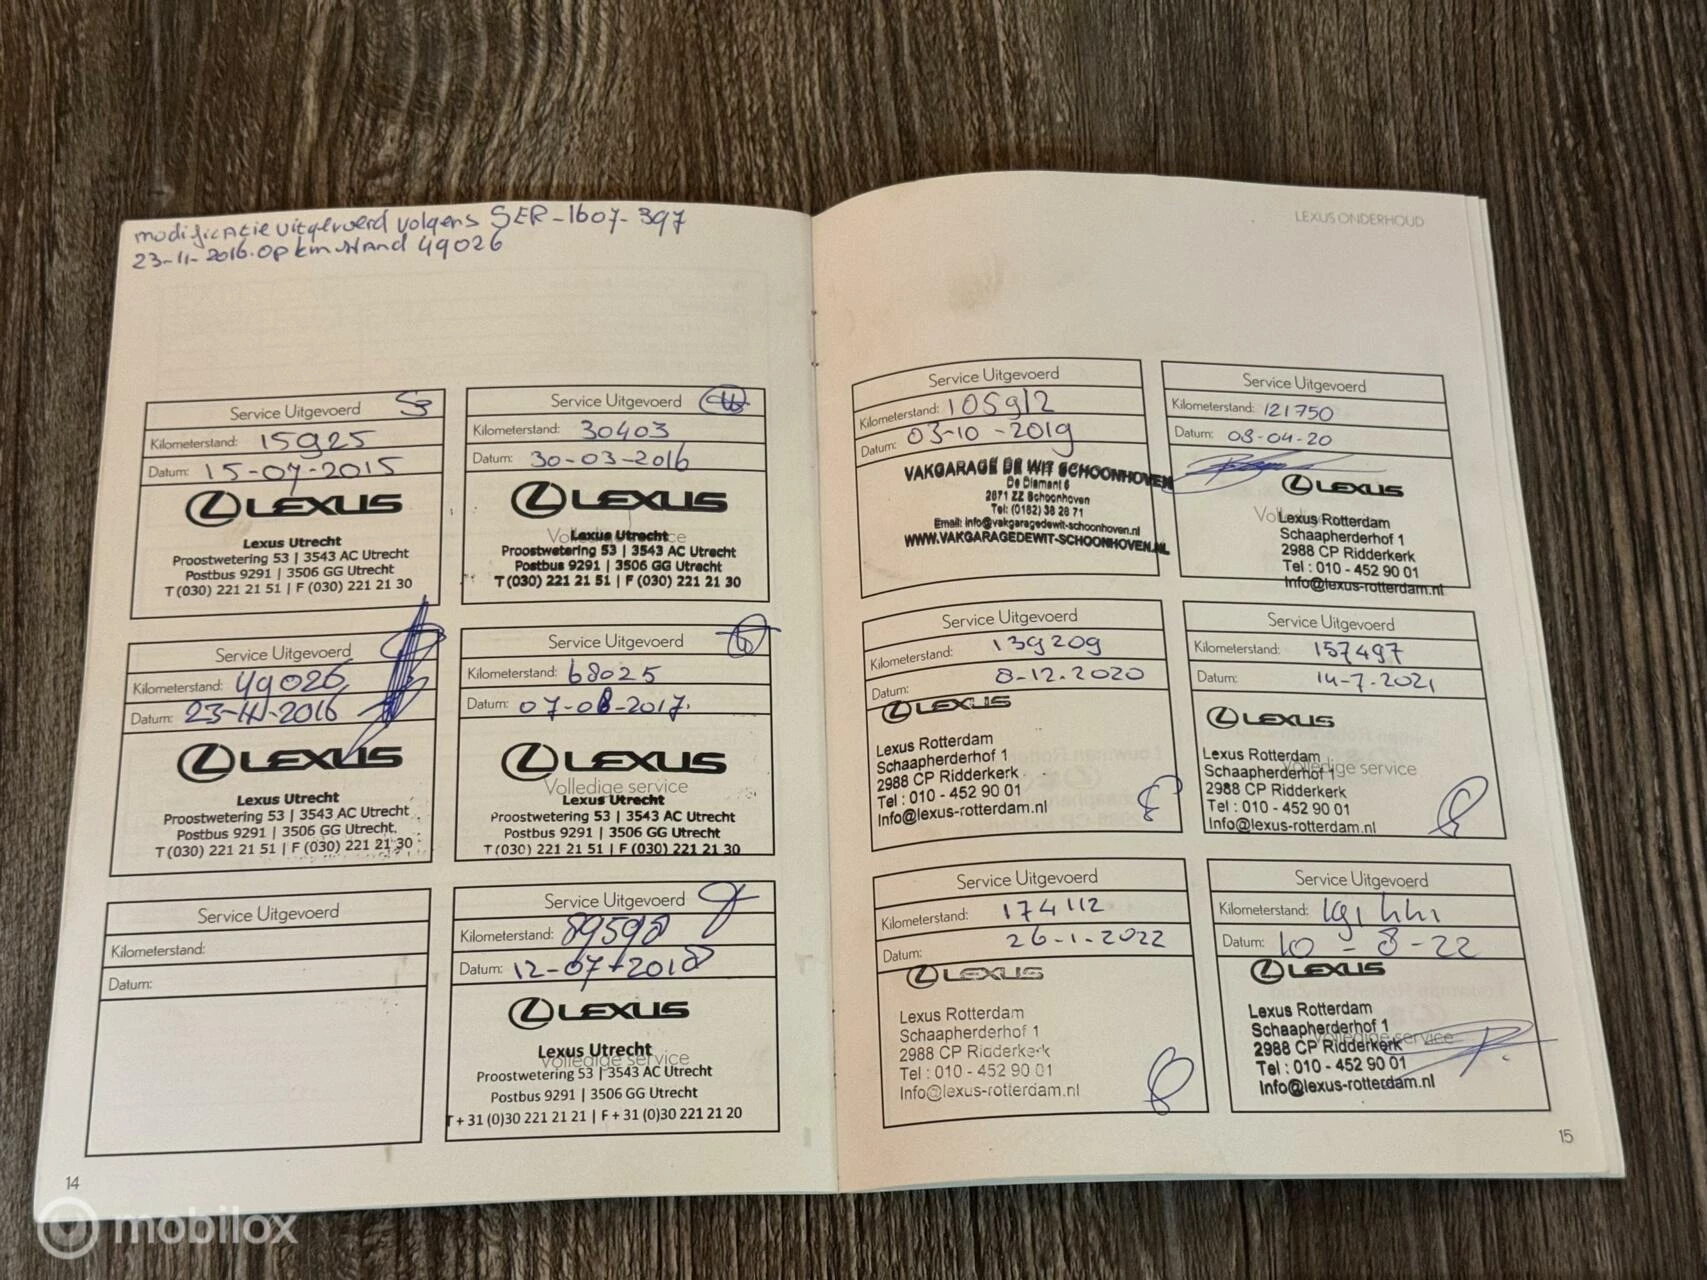 modificatie uitgevoerd volgens SER-1607-397
23-11-2016 op kmstand 49026
Service Uitgevoerd
Kilometerstand: 15925
Datum: 15-07-2015
LEXUS
Lexus Utrecht
Proostwetering 53 | 3543 AC Utrecht
Postbus 9291 | 3506 GG Utrecht
T (030) 221 21 51 | F (030) 221 21 30
Service Uitgevoerd
Kilometerstand: 30403
Datum: 30-03-2016
LEXUS
Volledige service
Lexus Utrecht
Proostwetering 53 | 3543 AC Utrecht
Postbus 9291 | 3506 GG Utrecht
T (030) 221 21 51 | F (030) 221 21 30
Service Uitgevoerd
Kilometerstand: 49026
Datum: 23-11-2016
LEXUS
Lexus Utrecht
Proostwetering 53 | 3543 AC Utrecht
Postbus 9291 | 3506 GG Utrecht
T (030) 221 21 51 | F (030) 221 21 30
Service Uitgevoerd
Kilometerstand: 68025
Datum:
LEXUS
Volledige service
Lexus Utrecht
Proostwetering 53 | 3543 AC Utrecht
Postbus 9291 | 3506 GG Utrecht
T (030) 221 21 51 | F (030) 221 21 30
Service Uitgevoerd
Kilometerstand:
Datum:
Service Uitgevoerd
Kilometerstand: 89598
Datum: 12-07-2018
LEXUS
Lexus Utrecht
Volledige service
Proostwetering 53 | 3543 AC Utrecht
Postbus 9291 | 3506 GG Utrecht
T + 31 (0)30 221 21 21 | F + 31 (0)30 221 21 20
14
LEXUS ONDERHOUD
Service Uitgevoerd
Kilometerstand: 105912
Datum: 03-10-2019
VAKGARAGE DE WIT SCHOONHOVEN
De Diamant 6
2871 ZZ Schoonhoven
Tel: (0182) 38 28 71
Email: info@vakgaragedewit-schoonhoven.nl
WWW.VAKGARAGEDEWIT-SCHOONHOVEN.NL
Service Uitgevoerd
Kilometerstand: 121750
Datum: 08-04-20
LEXUS
Lexus Rotterdam
Schaapherderhof 1
2988 CP Ridderkerk
Tel : 010 - 452 90 01
Info@lexus-rotterdam.nl
Service Uitgevoerd
Kilometerstand: 139209
Datum: 8-12.2020
LEXUS
Lexus Rotterdam
Schaapherderhof 1
2988 CP Ridderkerk
Tel : 010 - 452 90 01
Info@lexus-rotterdam.nl
Service Uitgevoerd
Kilometerstand: 157497
Datum: 14-7.2021
LEXUS
Lexus Rotterdam
Schaapherderhof 1
Volledige service
2988 CP Ridderkerk
Tel : 010 - 452 90 01
Info@lexus-rotterdam.nl
Service Uitgevoerd
Kilometerstand: 174112
Datum: 26-1.2022
LEXUS
Lexus Rotterdam
Schaapherderhof 1
2988 CP Ridderkerk
Tel : 010 - 452 90 01
Info@lexus-rotterdam.nl
Service Uitgevoerd
Kilometerstand:
Datum: 10-8-22
LEXUS
Lexus Rotterdam
Schaapherderhof 1
Volledige service
2988 CP Ridderkerk
Tel : 010 - 452 90 01
Info@lexus-rotterdam.nl
15
mobilox